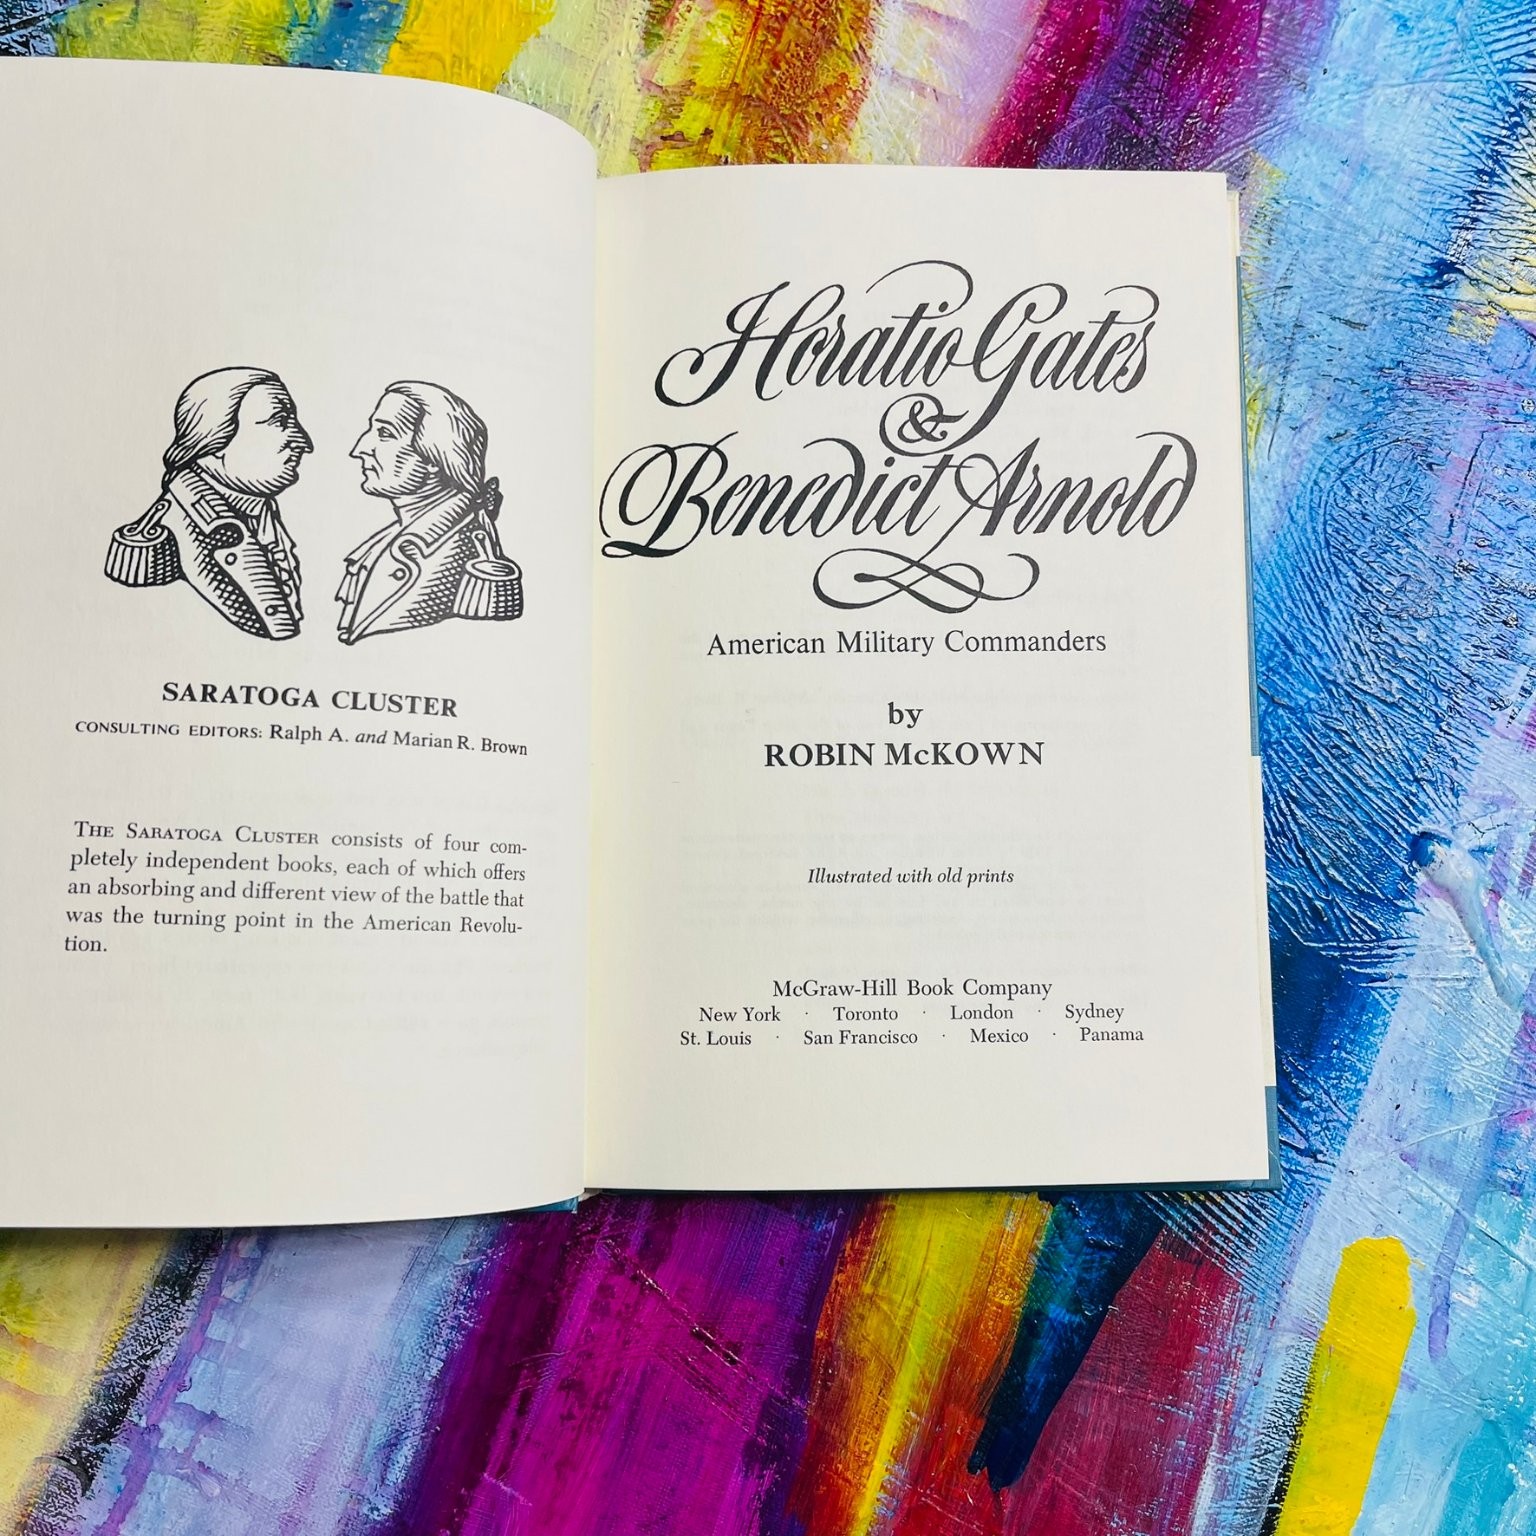 SARATOGA CLUSTER
CONSULTING EDITORS: Ralph A. and Marian R. Brown
THE SARATOGA CLUSTER consists of four com-
pletely independent books, each of which offers
an absorbing and different view of the battle that
was the turning point in the American Revolu-
tion.
Horatio Gates
&
Benedict Arnold
American Military Commanders
by
ROBIN McKOWN
Illustrated with old prints
McGraw-Hill Book Company
New York · Toronto · London · Sydney
St. Louis · San Francisco · Mexico · Panama